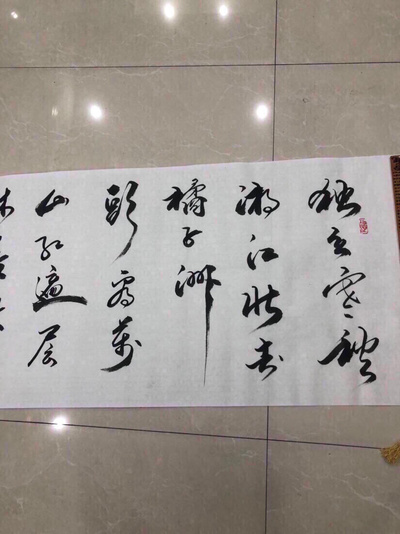 独立寒秋
湘江北去
橘子洲
頭看萬
山红遍层